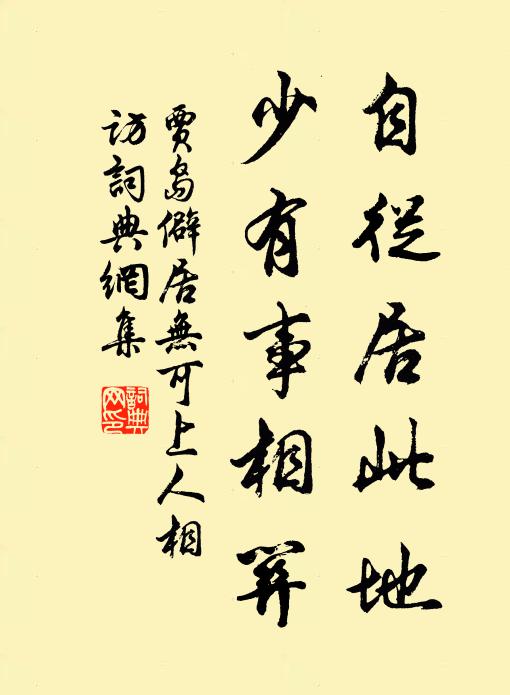 自從居此地
少有事相關
賈島僻居無可上人相
訪詞典網集
詞典
网印